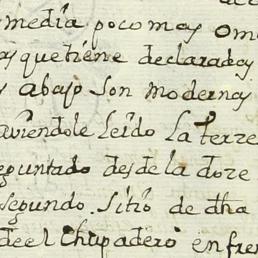 media poco mas Ome
as que tiene declaradas
y abajo son modernas
aviendole leido la terze
eguntado desde la doze
segundo. sitio de dha
de el Chupadero en fren